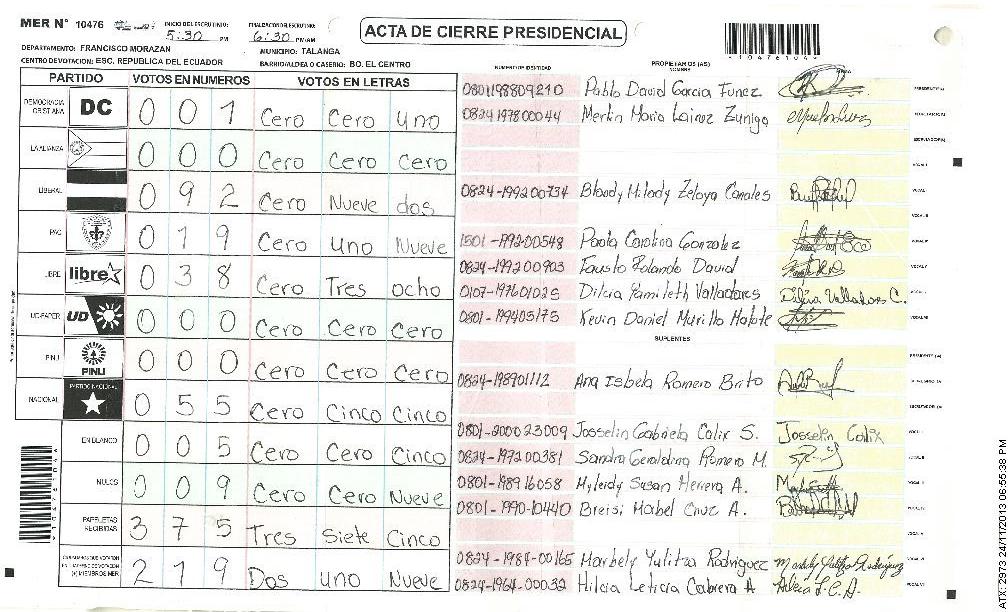 MER N° 10476 INICIO DEL ESCRUTINIO: 5:30 PM FINALIZACION DEL ESCRUTINIO: 6:30 PM/AM
ACTA DE CIERRE PRESIDENCIAL
DEPARTAMENTO: FRANCISCO MORAZAN MUNICIPIO: TALANGA
CENTRO DE VOTACION: ESC. REPUBLICA DEL ECUADOR BARRIO/ALDEA O CASERIO: BO. EL CENTRO
PARTIDO VOTOS EN NUMEROS VOTOS EN LETRAS
DEMOCRACIA CRISTIANA DC 0 0 1 Cero Cero Uno
LA ALIANZA 0 0 0 Cero Cero Cero
LIBERAL 0 9 2 Cero Nueve dos
PAC 0 1 9 Cero Uno Nueve
LIBRE libre 0 3 8 Cero Tres ocho
UD-FAPER UD 0 0 0 Cero Cero Cero
PINU PINU 0 0 0 Cero Cero Cero
NACIONAL PARTIDO NACIONAL 0 5 5 Cero Cinco Cinco
EN BLANCO 0 0 5 Cero Cero Cinco
NULOS 0 0 9 Cero Cero Nueve
PAPELETAS RECIBIDAS 3 7 5 Tres Siete Cinco
2 1 9 Dos uno Nueve
NUMERO DE IDENTIDAD PROPIETARIOS (AS) NOMBRE FIRMA
0801198809210 Pablo David Garcia Funez PRESIDENTE(A)
0824197800044 Merlin Maria Lainez Zuniga SECRETARIO(A)
ESCRUTADOR(A)
VOCAL I
0824-199200734 Blondy Milady Zelaya Canales VOCAL II
VOCAL III
1501-1992-00548 Paola Carolina Gonzalez VOCAL IV
0824-199200903 Fausto Rolando David VOCAL V
0107-19760 1025 Dilcia Yamileth Valladares Dilcia Valladares C.
0801-199405175 Kevin Daniel Murillo
SUPLENTES
PRESIDENTE (A)
0824-198901112 Ana Isbela Romero Brito
0801-2000 23009 Josselin Gabriela Calix S. Josselin Calix
0824-197200381 Sandra Geraldina Romero M.
0801-198916058 Myleidy Susan Herrera A.
0801-1990-10440 Breisi Mabel Cruz A.
0824-1984-00165 Marbely Yulitza Rodriguez
0824-1964-00032 Hilcia Leticia Cabrera A
10476104
ATX2 2973 24/11/2013 06:55:38 PM